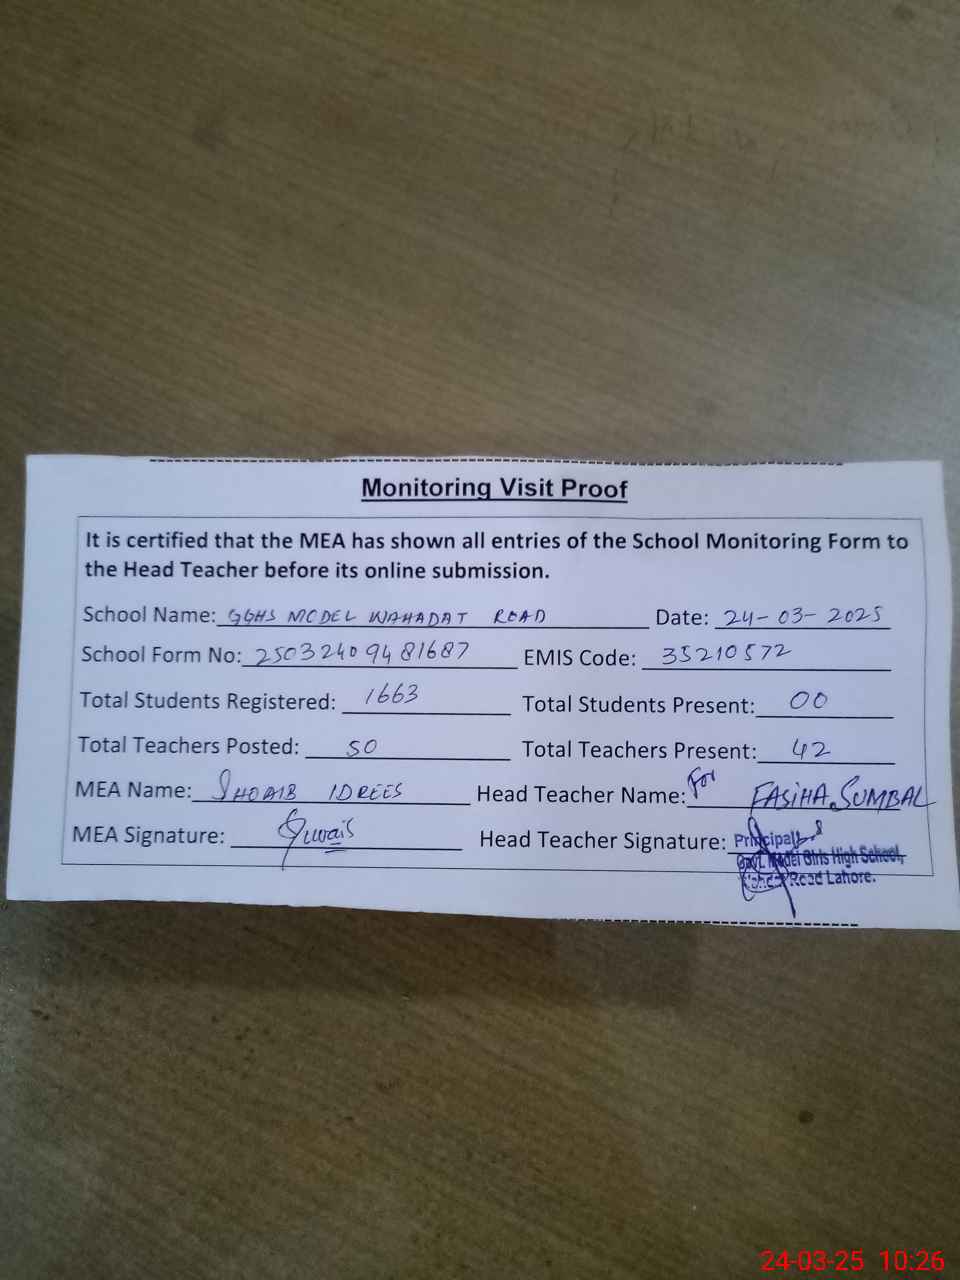 Monitoring Visit Proof
It is certified that the MEA has shown all entries of the School Monitoring Form to
the Head Teacher before its online submission.
School Name: GGHS MODEL WAHADAT ROAD Date: 24-03-2025
School Form No: 2503240994 81687 EMIS Code: 35210572
Total Students Registered: 1663 Total Students Present: 00
Total Teachers Posted: 50 Total Teachers Present: 42
MEA Name: SHOAIB IDREES Head Teacher Name: For FASIHA SUMBAL
MEA Signature: Head Teacher Signature: Principal
Govt. Model Girls High School,
Road Lahore.
24-03-25 10:26